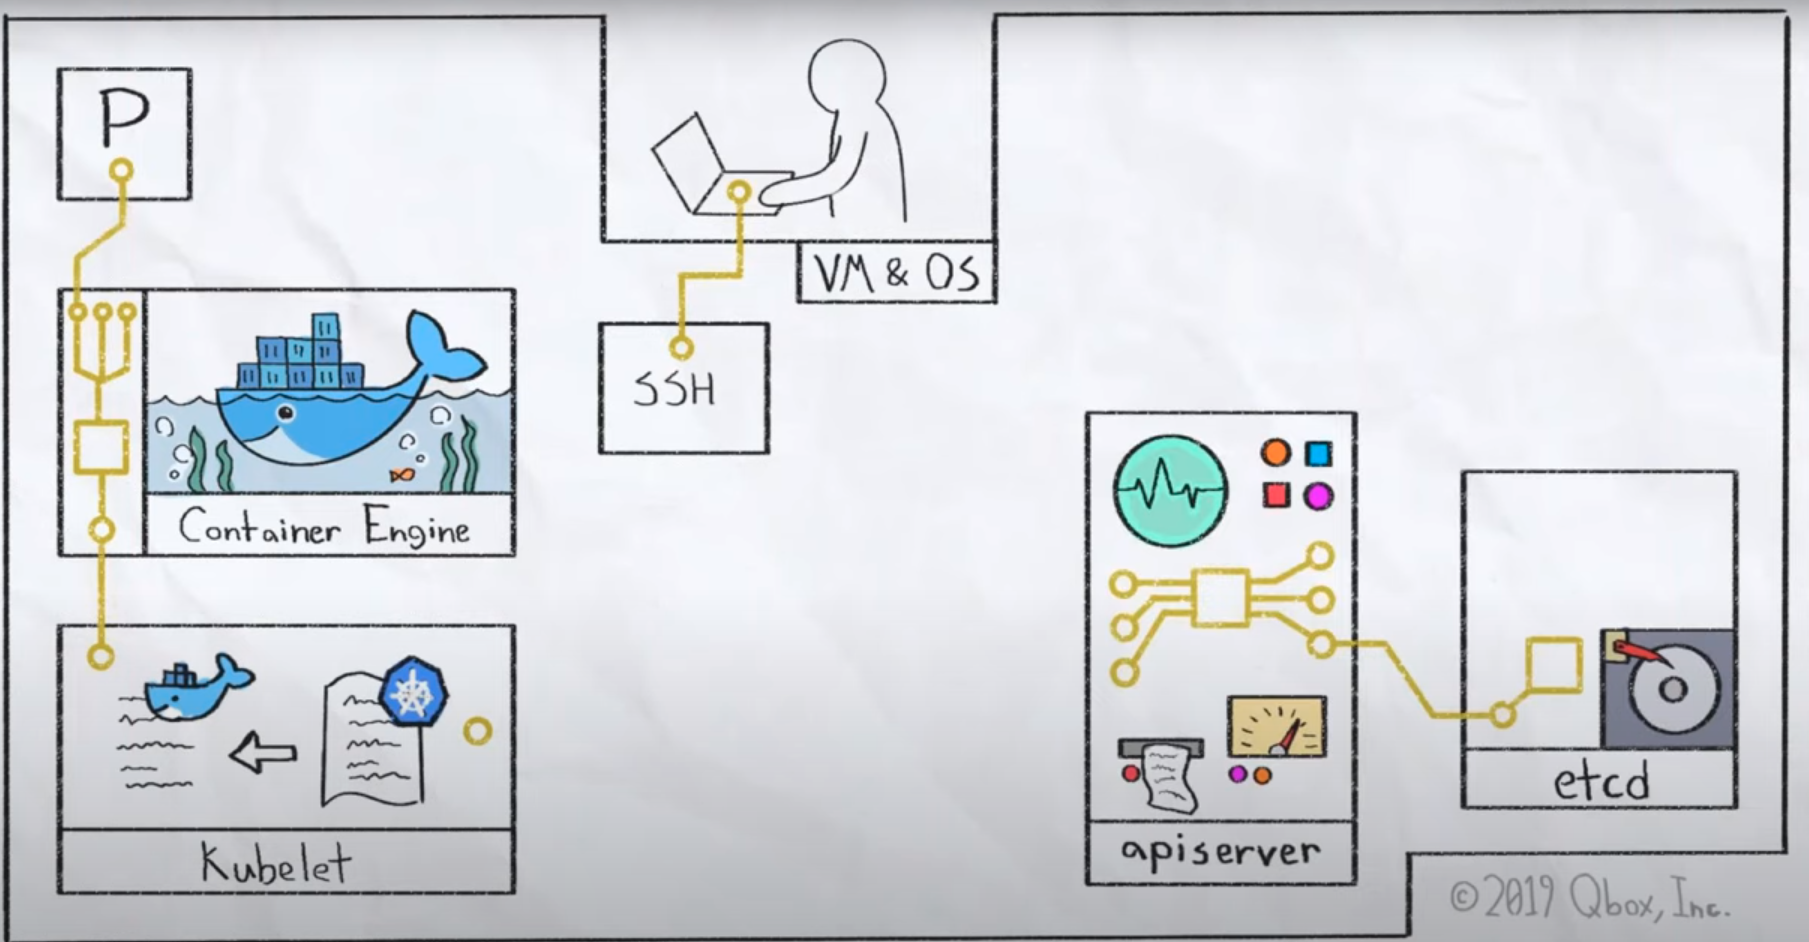 P
VM & OS
SSH
Container Engine
Kubelet
apiserver
etcd
©2019 Qbox, Inc.